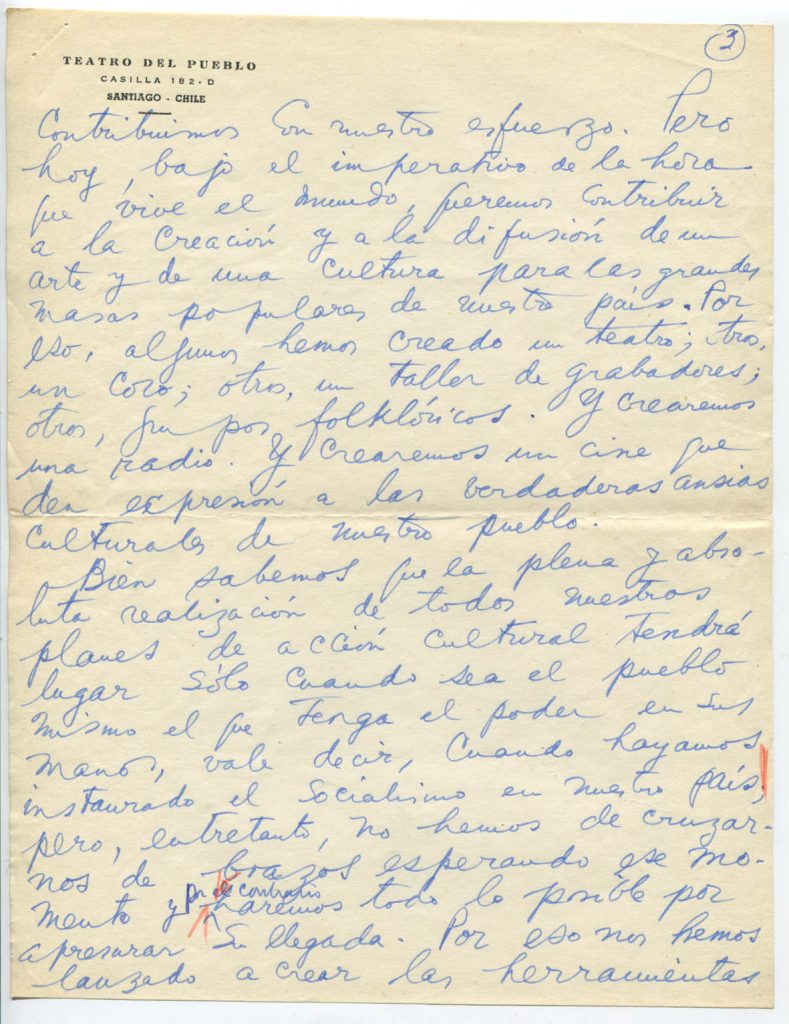 3
TEATRO DEL PUEBLO
CASILLA 182-D
SANTIAGO - CHILE
Contribuimos con nuestro esfuerzo. Pero
hoy, bajo el imperativo de la hora
que vive el mundo, queremos contribuir
a la creación y a la difusión de un
arte y de una cultura para las grandes
masas populares de nuestro país. Por
eso, algunos hemos creado un teatro; otros,
un coro; otros, un taller de grabadores;
otros, grupos folklóricos. Y crearemos
una radio. Y crearemos un cine que
den expresión a las verdaderas ansias
culturales de nuestro pueblo.
Bien sabemos que la plena y abso-
luta realización de todos nuestros
planes de acción cultural tendrá
lugar sólo cuando sea el pueblo
mismo el que tenga el poder en sus
manos, vale decir, cuando hayamos
instaurado el Socialismo en nuestro país,
pero, entretanto, no hemos de cruzar-
nos de brazos esperando ese mo-
mento y, por el contrario haremos todo lo posible por
apresurar su llegada. Por eso nos hemos
lanzado a crear las herramientas